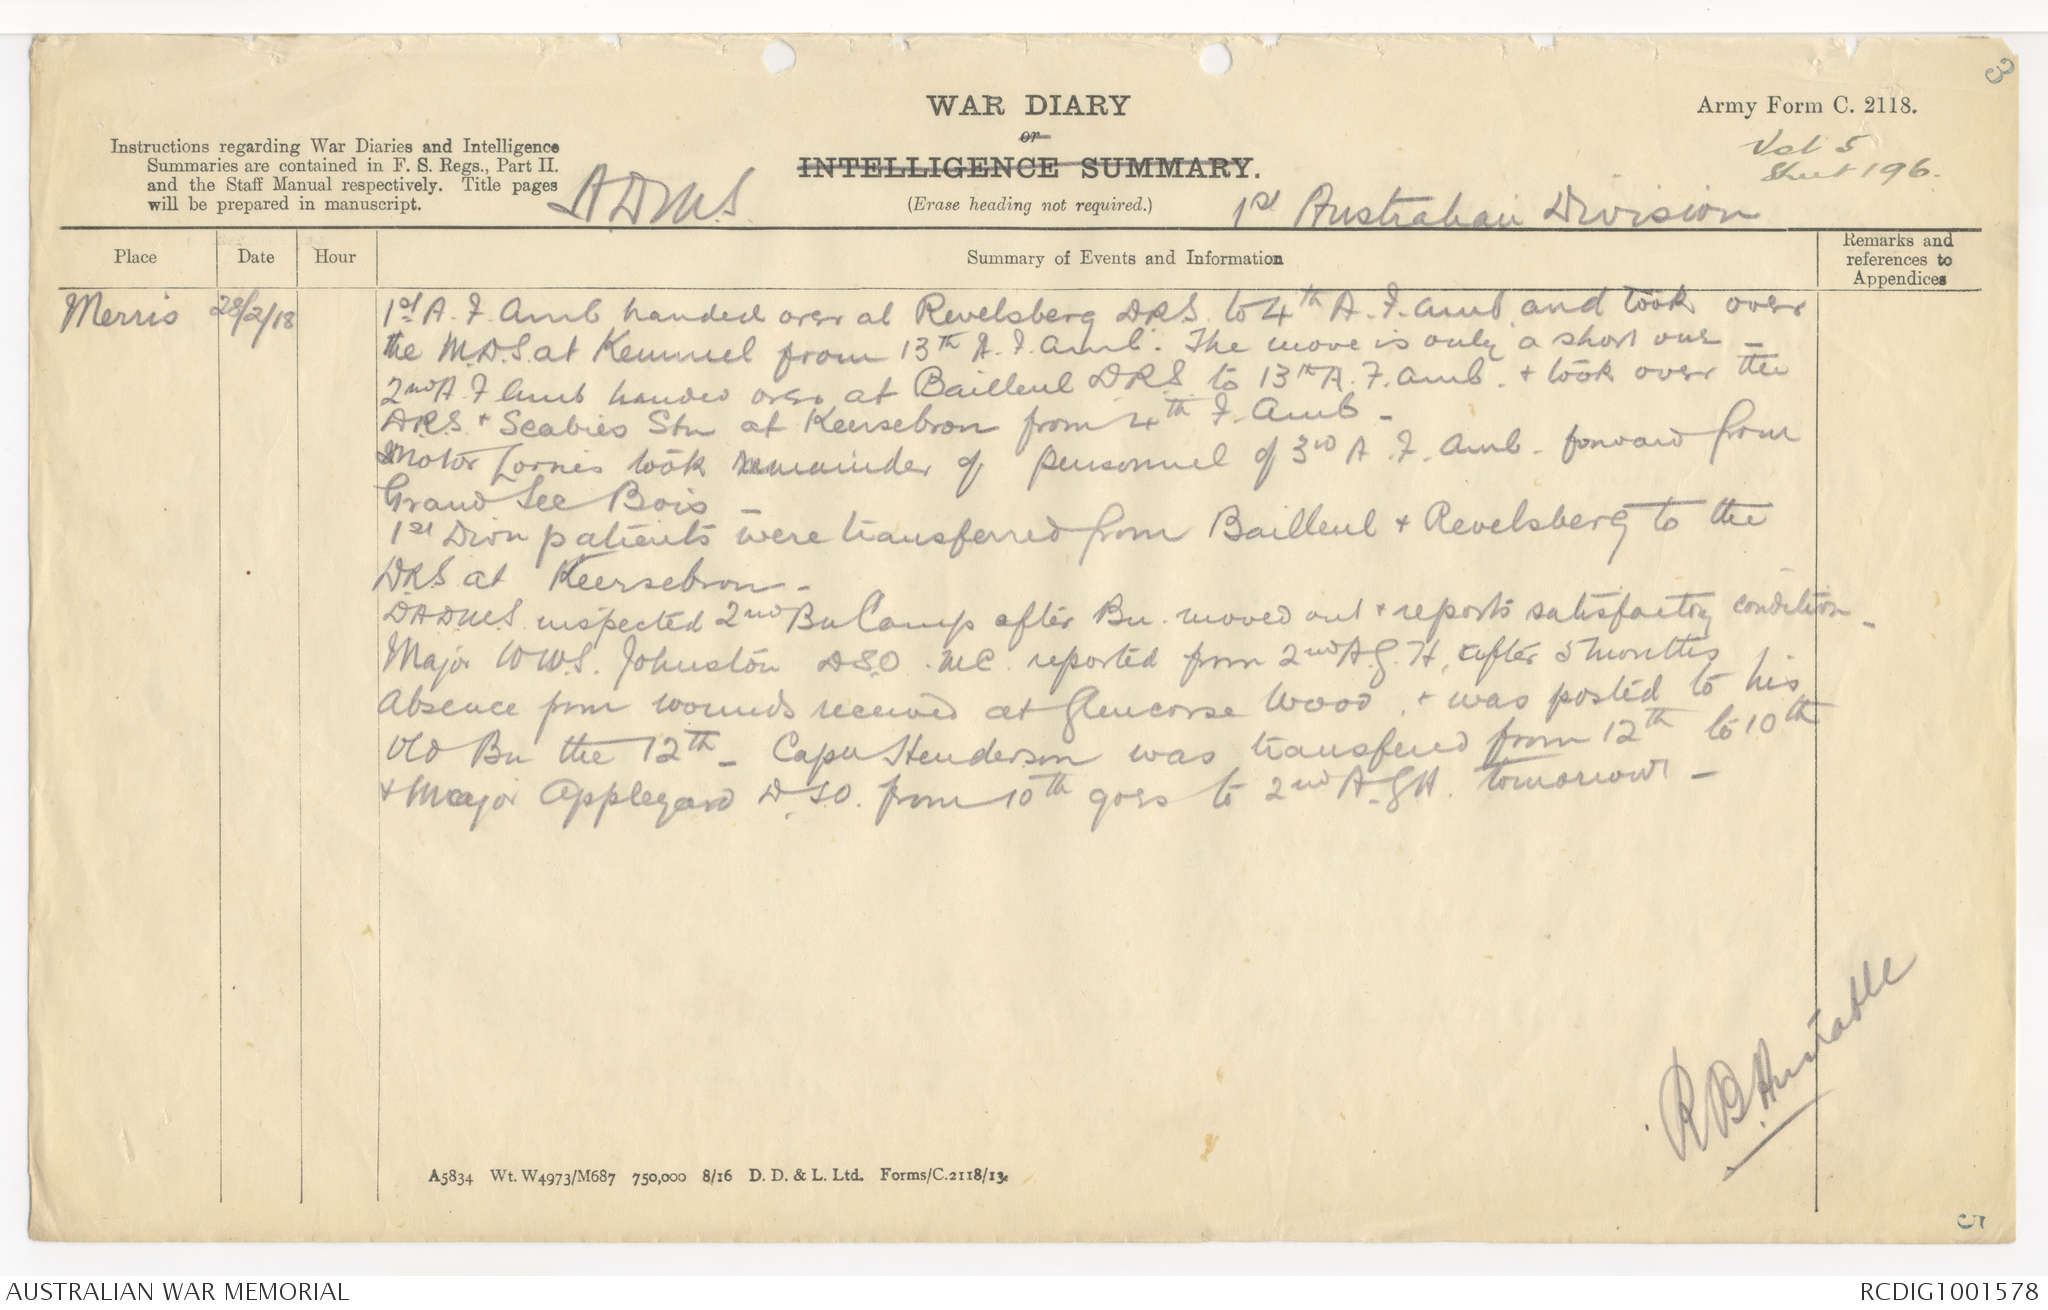 3
WAR DIARY
or
INTELLIGENCE SUMMARY.
(Erase heading not required.)
Army Form C. 2118.
Vol 5
Sheet 196.
Instructions regarding War Diaries and Intelligence
Summaries are contained in F. S. Regs., Part II.
and the Staff Manual respectively. Title pages
will be prepared in manuscript.
ADMS
1st Australian Division
Place Date Hour Summary of Events and Information Remarks and references to Appendices
Merris 28/2/18 1st A. F. Amb handed over at Revelsberg DRS. to 4th A. F. Amb. and took over
the M.D.S. at Kemmel from 13th A. F. Amb. The move is only a short one –
2nd A. F Amb handed over at Bailleul DRS to 13th A. F. Amb. + took over the
DRS + Scabies Stn at Keersebrom from 4th F. Amb –
Motor Lorries took remainder of personnel of 3rd A. F. Amb. forward from
Grand Sec Bois –
1st Divn patients were transferred from Bailleul + Revelsberg to the
DRS at Keersebrom –
DADMS inspected 2nd Bn Camp after Bn. moved out + reports satisfactory condition –
Major WWS. Johnston DSO. MC. reported from 2nd A.G.H. after 5 months
absence from wounds received at Glencorse Wood, + was posted to his
old Bn the 12th – Capn Henderson was transferred from 12th to 10th
+ Major Appleyard DSO. from 10th goes to 2nd A.G.H. tomorrow –
R B Huxtable
A5834 Wt. W4973/M687 750,000 8/16 D. D. & L. Ltd. Forms/C.2118/13.
AUSTRALIAN WAR MEMORIAL
RCDIG1001578